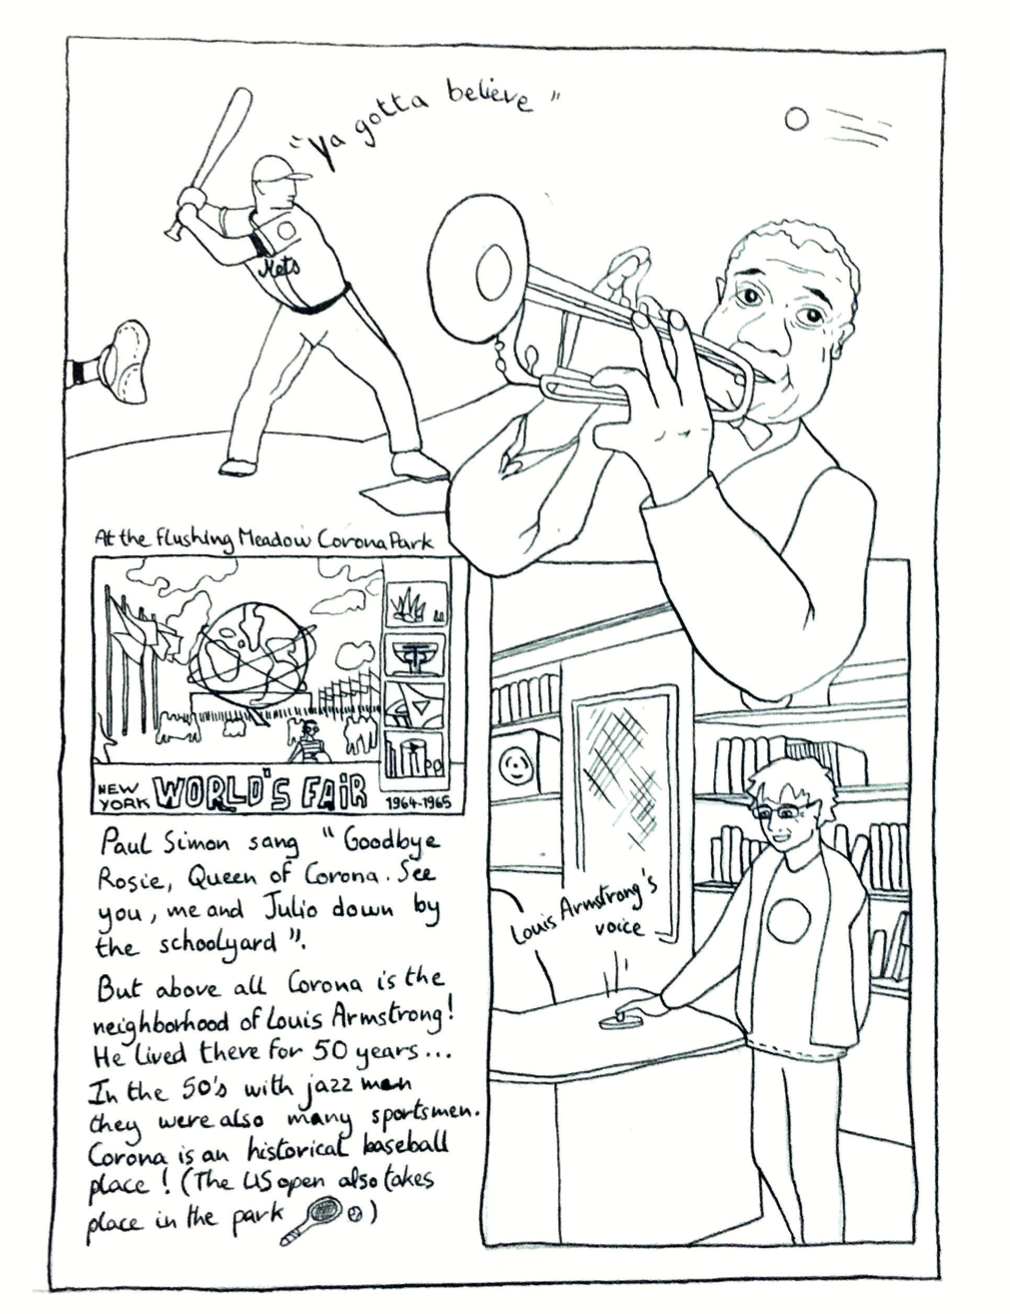 "Ya gotta believe"
Mets
At the Flushing Meadow Corona Park
NEW
YORK WORLD'S FAIR 1964-1965
Paul Simon sang "Goodbye
Rosie, Queen of Corona. See
you, me and Julio down by
the schoolyard".
But above all Corona is the
neighborhood of Louis Armstrong!
He lived there for 50 years...
In the 50's with jazz men
they were also many sportsmen.
Corona is an historical baseball
place ! (The US open also takes
place in the park )
Louis Armstrong's
voice